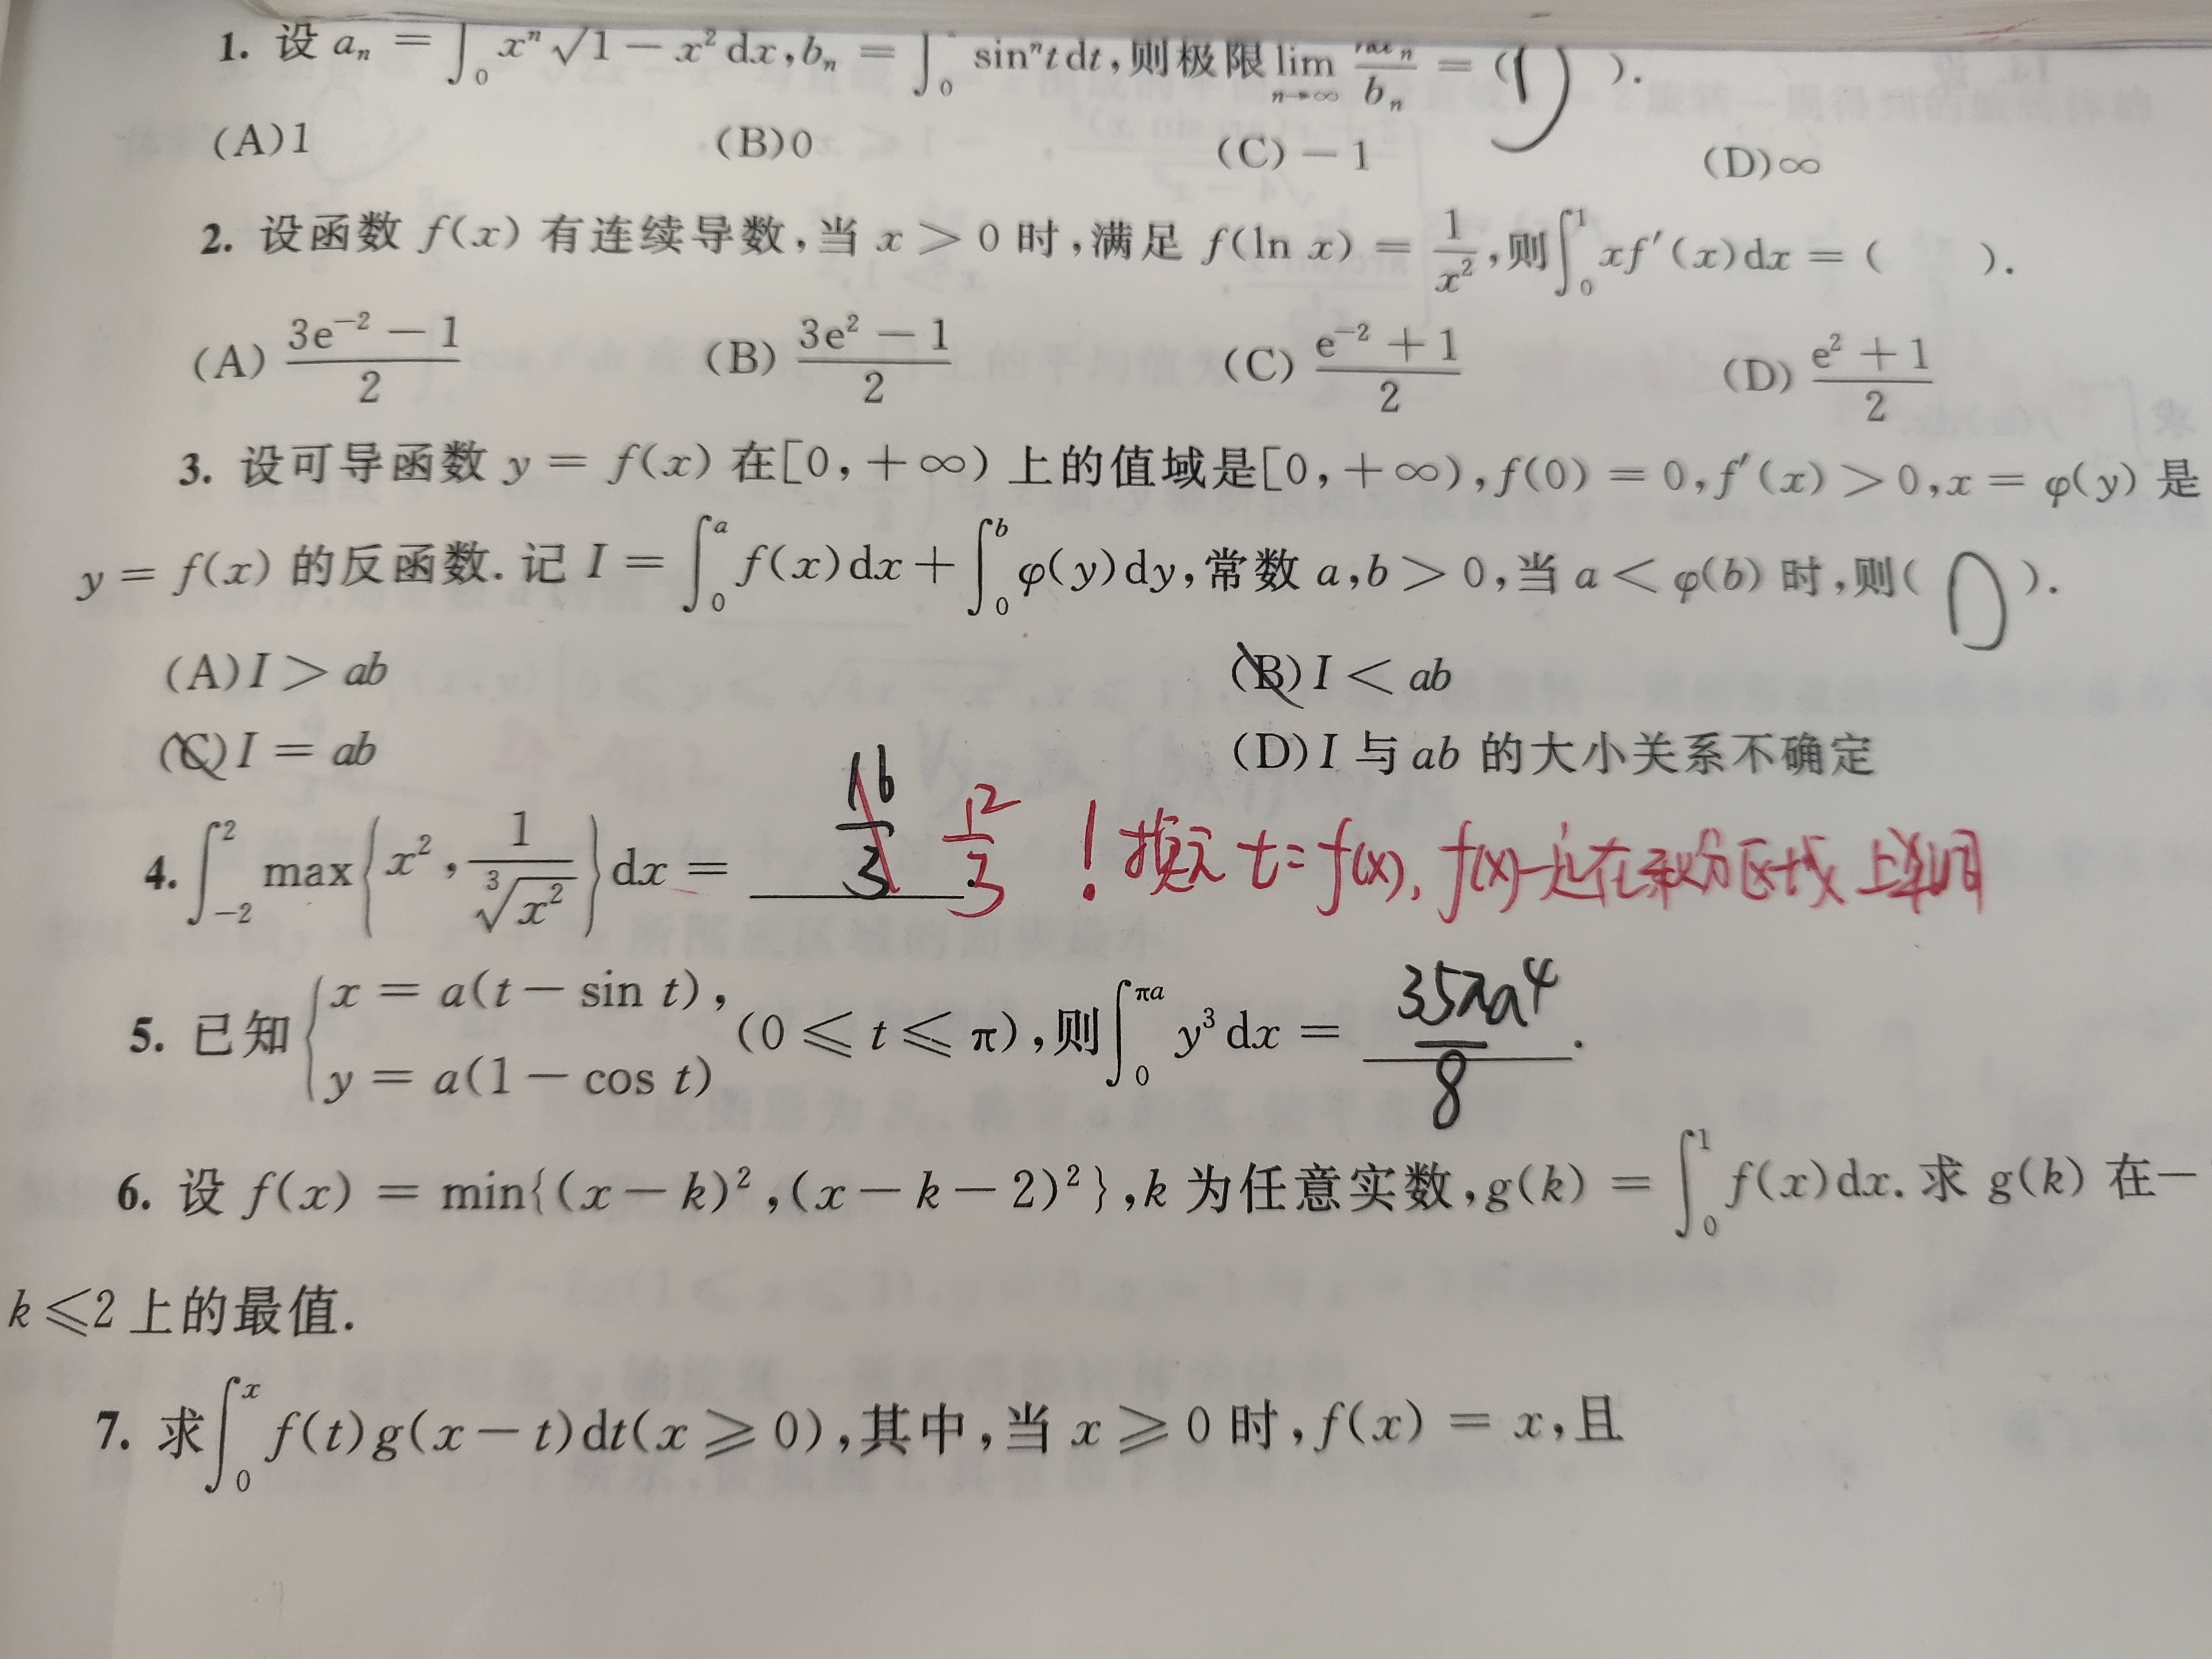 1. 设 aₙ = ∫₀ xⁿ√1 − x² dx, bₙ = ∫₀ sinⁿt dt, 则极限 lim_{n→∞} naₙ/bₙ = ( D ).
(A)1 (B)0 (C) − 1 (D)∞
2. 设函数 f(x) 有连续导数, 当 x > 0 时, 满足 f(ln x) = 1/x², 则∫₀¹ xf′(x)dx = ( ).
(A) (3e⁻² − 1)/2 (B) (3e² − 1)/2 (C) (e⁻² + 1)/2 (D) (e² + 1)/2
3. 设可导函数 y = f(x) 在[0, + ∞) 上的值域是[0, + ∞), f(0) = 0, f′(x) > 0, x = φ(y) 是
y = f(x) 的反函数. 记 I = ∫₀ᵃ f(x)dx + ∫₀ᵇ φ(y)dy, 常数 a,b > 0, 当 a < φ(b) 时, 则( D ).
(A)I > ab (B)I < ab
(C)I = ab (D)I 与 ab 的大小关系不确定
4. ∫₋₂² max{x², 1/∛x²}dx = 16/3 12/3 ! 换元 t = f(x), f(x)一定在积分区域上单调
5. 已知{x = a(t − sin t), y = a(1 − cos t) (0 ⩽ t ⩽ π), 则∫₀^{πa} y³ dx = 35πa⁴/8 .
6. 设 f(x) = min{(x − k)², (x − k − 2)²}, k 为任意实数, g(k) = ∫₀¹ f(x)dx. 求 g(k) 在 −
k ⩽2 上的最值.
7. 求∫₀ˣ f(t)g(x − t)dt(x ⩾ 0), 其中, 当 x ⩾ 0 时, f(x) = x, 且